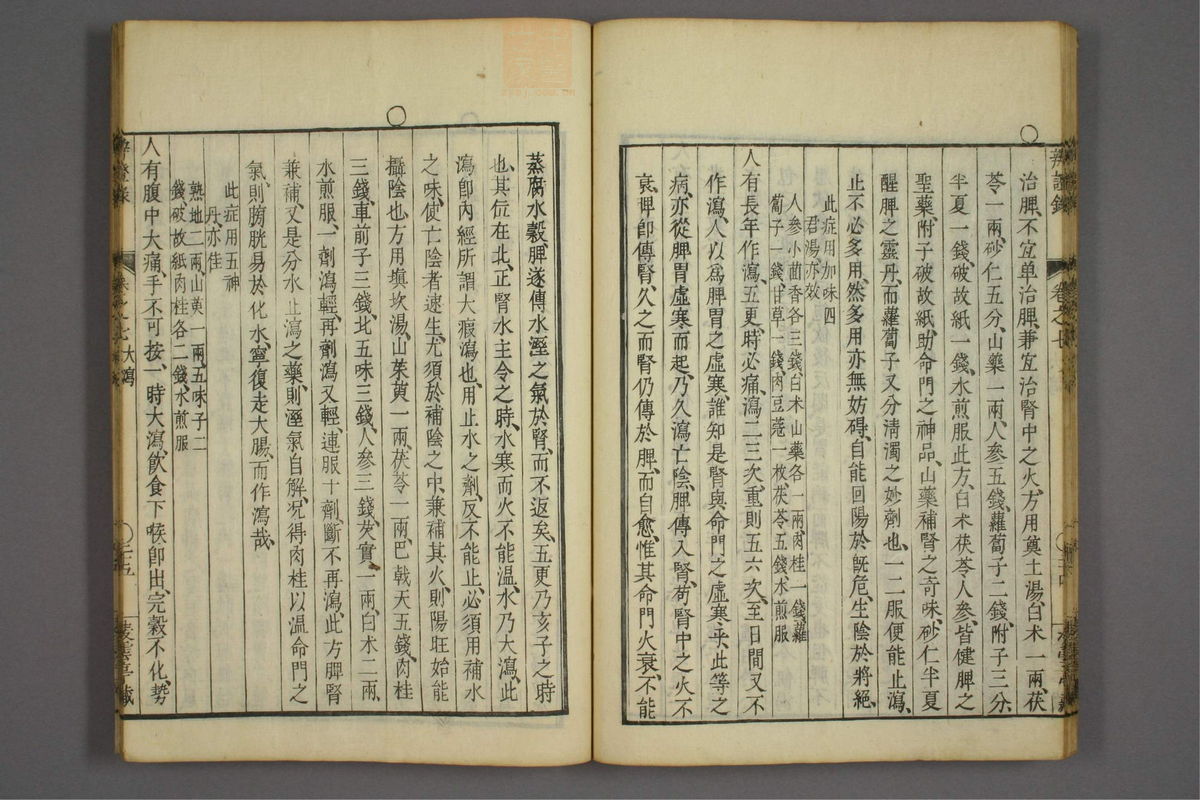 治脾、不宜单治脾、兼宜治腎中之火、方用奠土湯、白术一兩、茯
苓一兩、砂仁五分、山藥一兩、人參五錢、蘿蔔子二錢、附子三分、
半夏一錢、破故紙一錢、水煎服、此方、白术茯苓人參、皆健脾之
聖藥、附子破故紙、助命門之神品、山藥補腎之奇味、砂仁半夏
醒脾之靈丹、而蘿蔔子又分清濁之妙劑也、一二服便能止瀉、
止不必多用、然多用亦無妨碍、自能回陽於既危、生陰於將絕、
此症用加味四
君湯亦效
人參小茴香各三錢、白术山藥各一兩、肉桂一錢、蘿
蔔子一錢、甘草一錢、肉豆蔻一枚、茯苓五錢、水煎服
人有長年作瀉、五更時必痛瀉二三次、重則五六次、至日間又不
作瀉、人以爲脾胃之虛寒、誰知是腎與命門之虛寒乎、此等之
病、亦從脾胃虛寒而起、乃久瀉亡陰、脾傳入腎、苟腎中之火不
衰、脾即傳腎、久之而腎仍傳於脾、而自愈、惟其命門火衰、不能
蒸腐水穀、脾遂傳水溼之氣於腎、而不返矣、五更乃亥子之時
也、其位在北、正腎水主令之時、水寒而火不能溫、水乃大瀉、此
瀉即內經所謂大瘕瀉也、用止水之劑、反不能止、必須用補水
之味、使亡陰者速生、尤須於補陰之中、兼補其火、則陽旺始能
攝陰也、方用塡坎湯、山茱萸一兩、茯苓一兩、巴戟天五錢、肉桂
三錢、車前子三錢、北五味三錢、人參三錢、芡實一兩、白术二兩、
水煎服、一劑瀉輕、再劑瀉又輕、連服十劑、斷不再瀉、此方脾腎
兼補、又是分水止瀉之藥、則溼氣自解、况得肉桂以溫命門之
氣、則膀胱易於化水、寧復走大腸、而作瀉哉、
此症用五神
丹亦佳
熟地二兩、山萸一兩、五味子二
錢、破故紙肉桂各二錢、水煎服
人有腹中大痛、手不可按、一時大瀉、飲食下喉即出、完穀不化、勢
卷之七 大瀉